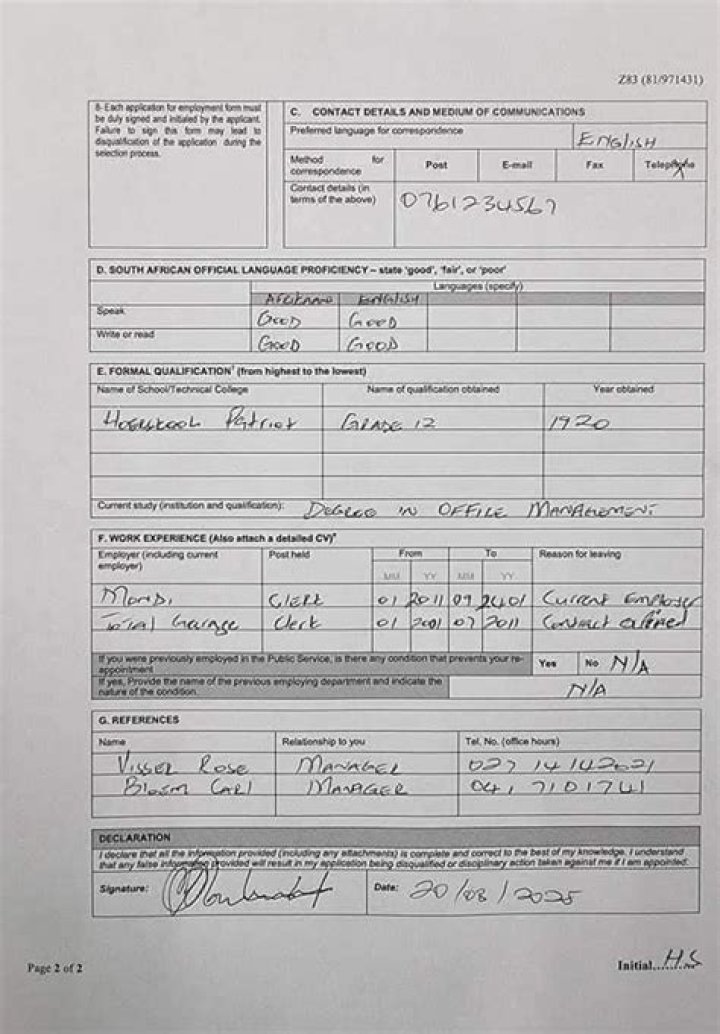 Z83 (81/971431)
8- Each application for employment form must
be duly signed and initialed by the applicant.
Failure to sign this form may lead to
disqualification of the application during the
selection process.
C. CONTACT DETAILS AND MEDIUM OF COMMUNICATIONS
Preferred language for correspondence
ENGlISH
Method for correspondence Post E-mail Fax Telephone
Contact details (in
terms of the above)
0761234567
D. SOUTH AFRICAN OFFICIAL LANGUAGE PROFICIENCY – state 'good', 'fair', or 'poor'
Languages (specify)
AFRIKAANS ENGLISH
Speak GOOD GOOD
Write or read GOOD GOOD
E. FORMAL QUALIFICATION¹ (from highest to the lowest)
Name of School/Technical College Name of qualification obtained Year obtained
HOERSKOOL Patriot GRADE 12 1920
Current study (institution and qualification): DEGREE IN OFFICE MANAGEMENT
F. WORK EXPERIENCE (Also attach a detailed CV)
Employer (including current
employer)
Post held From To Reason for leaving
MM YY MM YY
Mondi Clerk 01 2011 09 2401 Current Employer
Total Garage Clerk 01 2001 07 2011 Contract expired
If you were previously employed in the Public Service, is there any condition that prevents your re-
appointment
Yes No N/A
If yes, Provide the name of the previous employing department and indicate the
nature of the condition.
N/A
G. REFERENCES
Name Relationship to you Tel. No. (office hours)
VISSER ROSE MANAGER
Bloem Carl MANAGER 041 7101741
DECLARATION
I declare that all the information provided (including any attachments) is complete and correct to the best of my knowledge. I understand
that any false information provided will result in my application being disqualified or disciplinary action taken against me if I am appointed.
Signature: Date: 20/08/2025
Page 2 of 2
Initial.......... HS